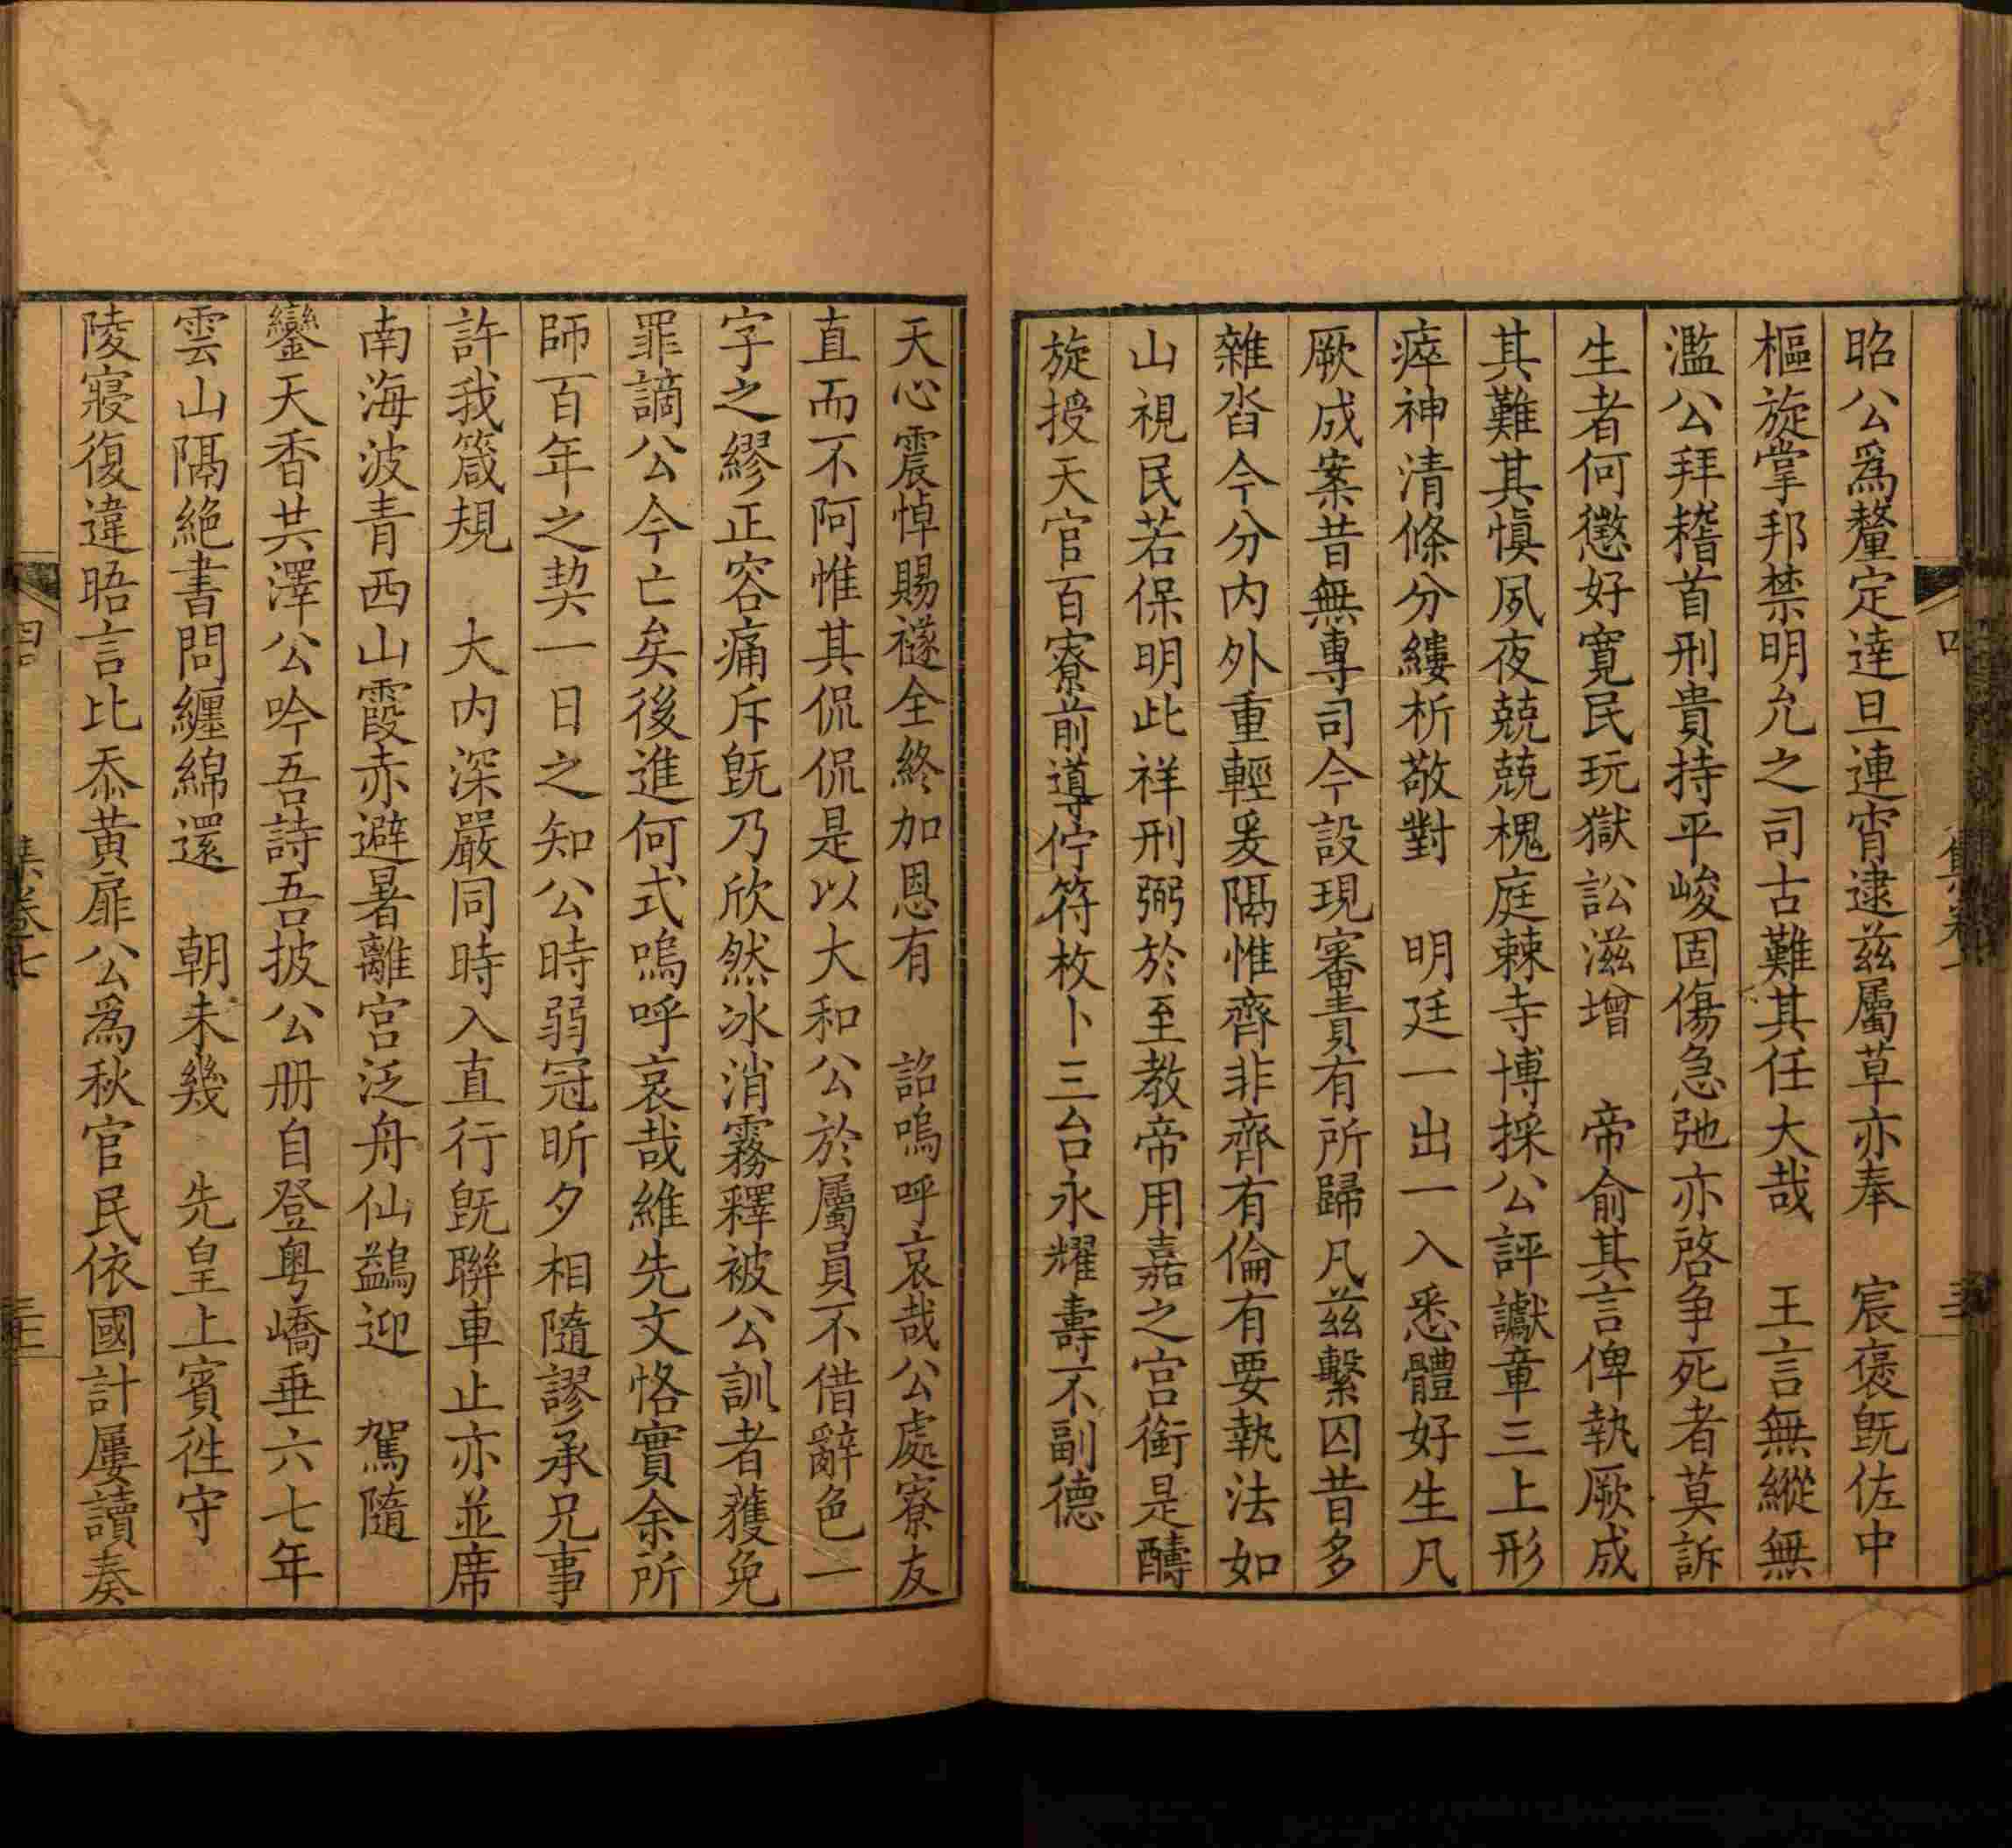 昭公爲釐定達旦連宵逮茲屬草亦奉　宸褒旣佐中
樞旋掌邦禁明允之司古難其任大哉　王言無縱無
濫公拜稽首刑貴持平峻固傷急弛亦啓爭死者莫訴
生者何懲好寬民玩獄訟滋增　帝俞其言俾執厥成
其難其愼夙夜兢兢槐庭棘寺博採公評讞章三上形
瘁神清條分縷析敬對　明廷一出一入悉體好生凡
厥成案昔無專司今設現審責有所歸凡茲繫囚昔多
雜沓今分內外重輕爰隔惟齊非齊有倫有要執法如
山視民若保明此祥刑弼於至教帝用嘉之宫銜是醻
旋授天官百寮前導佇符枚卜三台永耀壽不副德
天心震悼賜襚全終加恩有　詔嗚呼哀哉公處寮友
直而不阿惟其侃侃是以大和公於屬員不借辭色一
字之繆正容痛斥旣乃欣然冰消霧釋被公訓者蒦免
罪謫公今亡矣後進何式嗚呼哀哉維先文恪實余所
師百年之契一日之知公時弱冠昕夕相隨謬承兄事
許我箴規　大內深嚴同時入直行旣聯車止亦並席
南海波青西山霞赤避暑離宫泛舟仙鷁迎　駕隨
鑾天香共澤公吟吾詩吾披公册自登粤嶠垂六七年
雲山隔絶書問纏綿還　朝未幾　先皇上賓徃守
陵寢復違晤言比忝黄扉公爲秋官民依國計屢讀奏